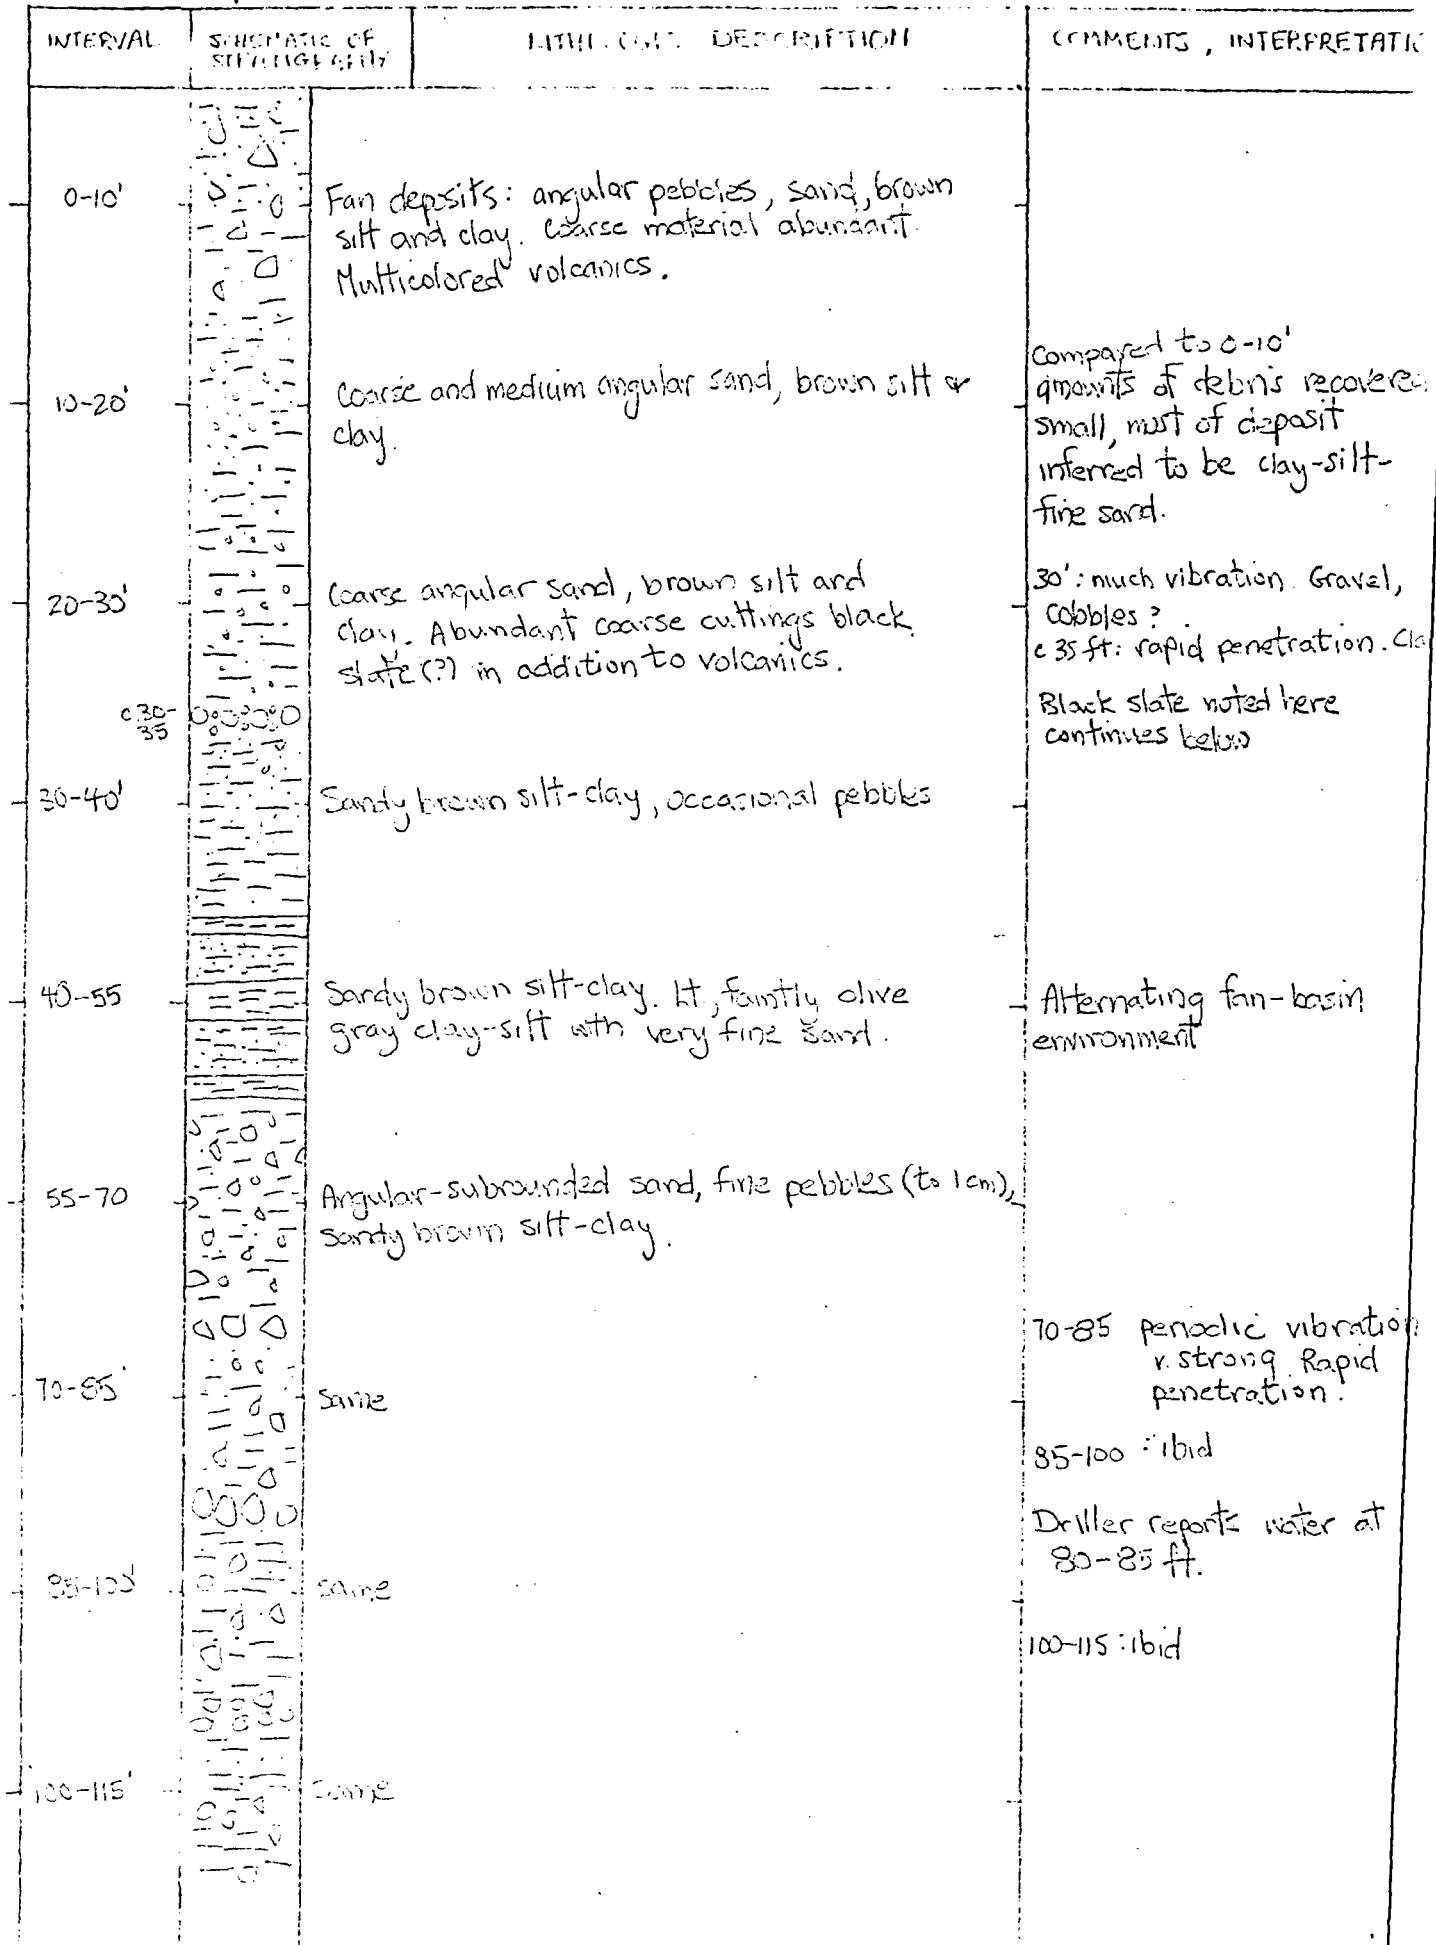 INTERVAL
SCHEMATIC OF
STRATIGRAPHY
LITHOLOGIC DESCRIPTION
COMMENTS, INTERPRETATIO
0-10'
Fan deposits: angular pebbles, sand, brown
silt and clay. Coarse material abundant.
Multicolored volcanics.
10-20'
Coarse and medium angular sand, brown silt or
clay.
Compared to 0-10'
amounts of debris recovered
small, most of deposit
inferred to be clay-silt-
fine sand.
20-30'
Coarse angular sand, brown silt and
clay. Abundant coarse cuttings black
slate (?) in addition to volcanics.
30': much vibration. Gravel,
cobbles?
c 35 ft: rapid penetration. Cla
c.30-
35
Black slate noted here
continues below
30-40'
Sandy brown silt-clay, occasional pebbles
40-55
Sandy brown silt-clay. Lt, faintly olive
gray clay-silt wth very fine sand.
Alternating fan-basin
environment
55-70
Angular-subrounded sand, fine pebbles (to 1cm),
sandy brown silt-clay.
70-85'
same
70-85 periodic vibration
v. strong. Rapid
penetration.
85-100: ibid
Driller reports water at
80-85 ft.
85-100'
same
100-115: ibid
100-115'
same